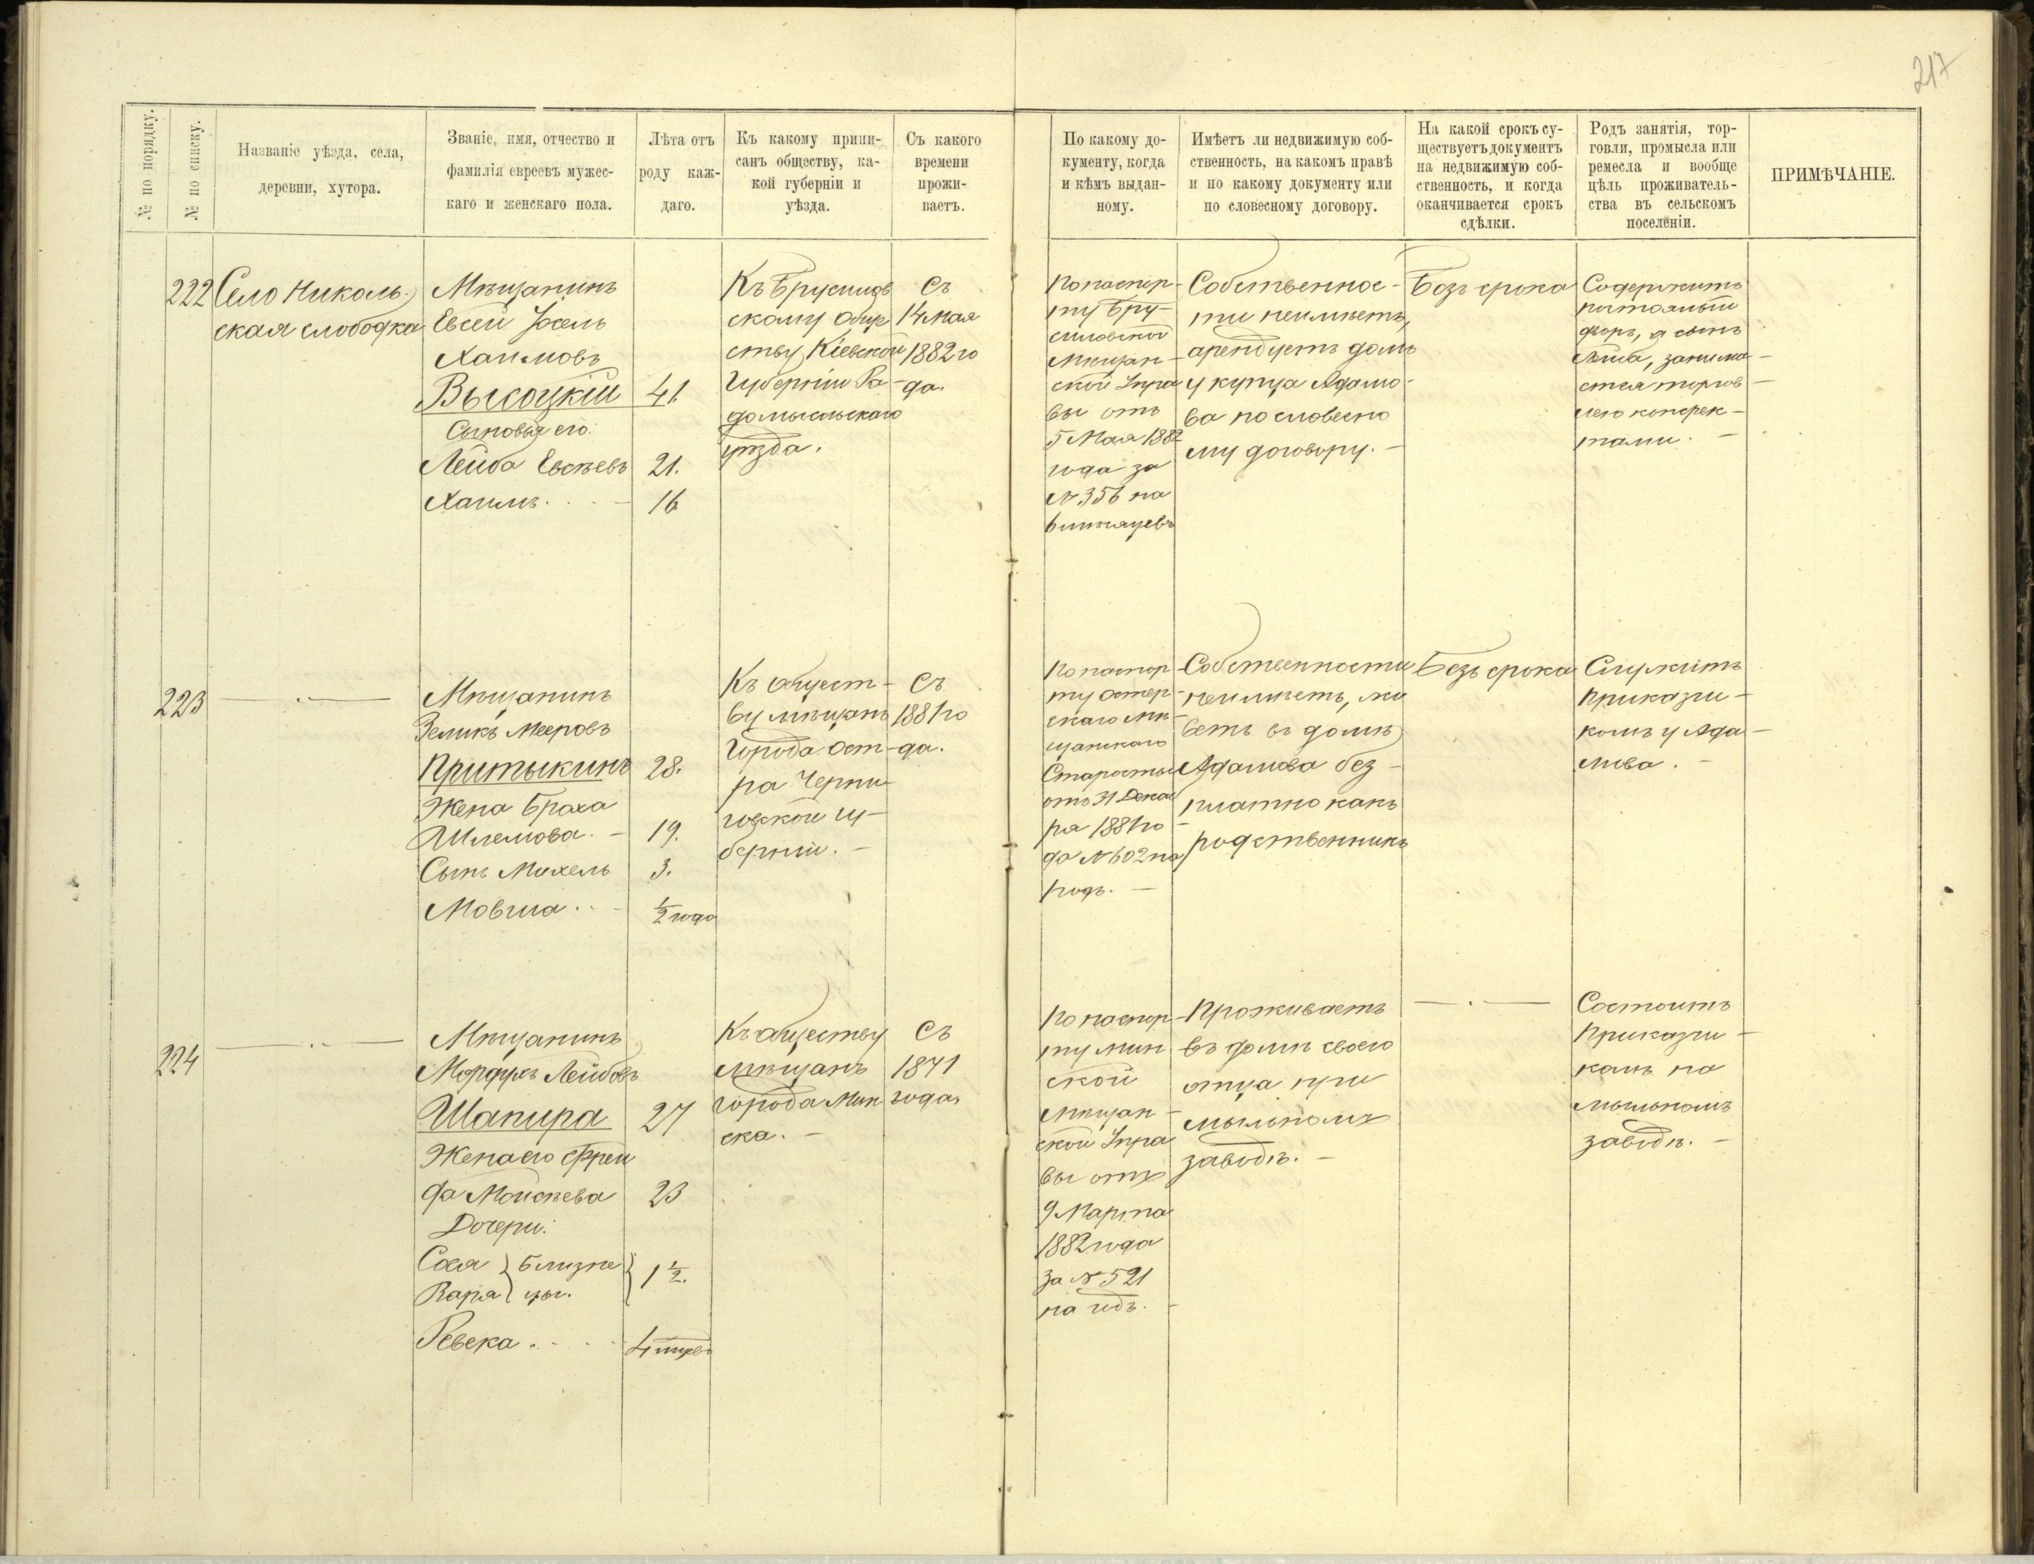 217
№ по порядку.
№ по списку.
Названіе уѣзда, села,
деревни, хутора.
Званіе, имя, отчество и
фамилія евреевъ мужес-
каго и женскаго пола.
Лѣта отъ
роду каж-
даго.
Къ какому припи-
санъ обществу, ка-
кой губерніи и
уѣзда.
Съ какого
времени
прожи-
ваетъ.
По какому до-
кументу, когда
и кѣмъ выдан-
ному.
Имѣетъ ли недвижимую соб-
ственность, на какомъ правѣ
и по какому документу или
по словесному договору.
На какой срокъ су-
ществуетъ документъ
на недвижимую соб-
ственность, и когда
оканчивается срокъ
сдѣлки.
Родъ занятія, тор-
говли, промысла или
ремесла и вообще
цѣль проживатель-
ства въ сельскомъ
поселеніи.
ПРИМѢЧАНІЕ.
222
Село Николь-
ская слободка
Мѣщанинъ
Евсей Іосель
Хаимовъ
Высоцкій
Сыновья его:
Лейба Евсѣевъ
Хаимъ . . . —
41.
21.
16
Къ Брусилов
скому Обще
ству Кіевской
Губерніи Ра-
домысльскаго
уѣзда.
Съ
14 мая
1882 го
да.
По паспор-
ту Бру-
силовской
Мѣщан-
ской Упра
вы отъ
5 Мая 1882
года за
№ 356 на
6 мѣсяцевъ
Собственнос-
ти неимѣетъ,
арендуетъ домъ
у купца Адамо-
ва по словесно
му договору. —
Безъ срока
Содержитъ
постоялый
дворъ, а сынъ
Лейба, занима-
ется торгов-
лею конфек-
тами. —
223
— . —
Мѣщанинъ
Зеликъ Мееровъ
Притыкинъ
Жена Браха
Шлемова. —
Сынъ Михель
Мовша . . —
28.
19.
3.
½ года
Къ общест-
ву мѣщанъ
Города Ост-
ра Черни
говской гу-
берніи. —
Съ
1881 го
да.
По паспор
ту Остер-
скаго Мѣ-
щанскаго
Старосты
отъ 31 Декаб
ря 1881 го-
да № 602 на
годъ. —
Собственности
неимѣетъ, жи
ветъ въ домѣ
Адамова без-
платно какъ
родственникъ
Безъ срока
Служитъ
Прикащи-
комъ у Ада-
мова. —
224
— . . —
Мѣщанинъ
Мордухъ Лейбовъ
Шапира
Жена его Фрей
да Моисѣева
Дочери:
Сося } Близне
Вара } цы.
Ревека . . .
27
23
1 ½.
4 мѣсяц
Къ обществу
мѣщанъ
города Мин
ска. —
Съ
1871
года.
По паспор-
ту Мин
ской
Мѣщан-
ской Упра
вы отъ
9 Марта
1882 года
за № 521
на годъ. —
Проживаетъ
въ домѣ своего
отца при
мыльномъ
заводѣ. —
— . —
Состоитъ
Прикащи-
комъ на
мыльномъ
заводѣ. —